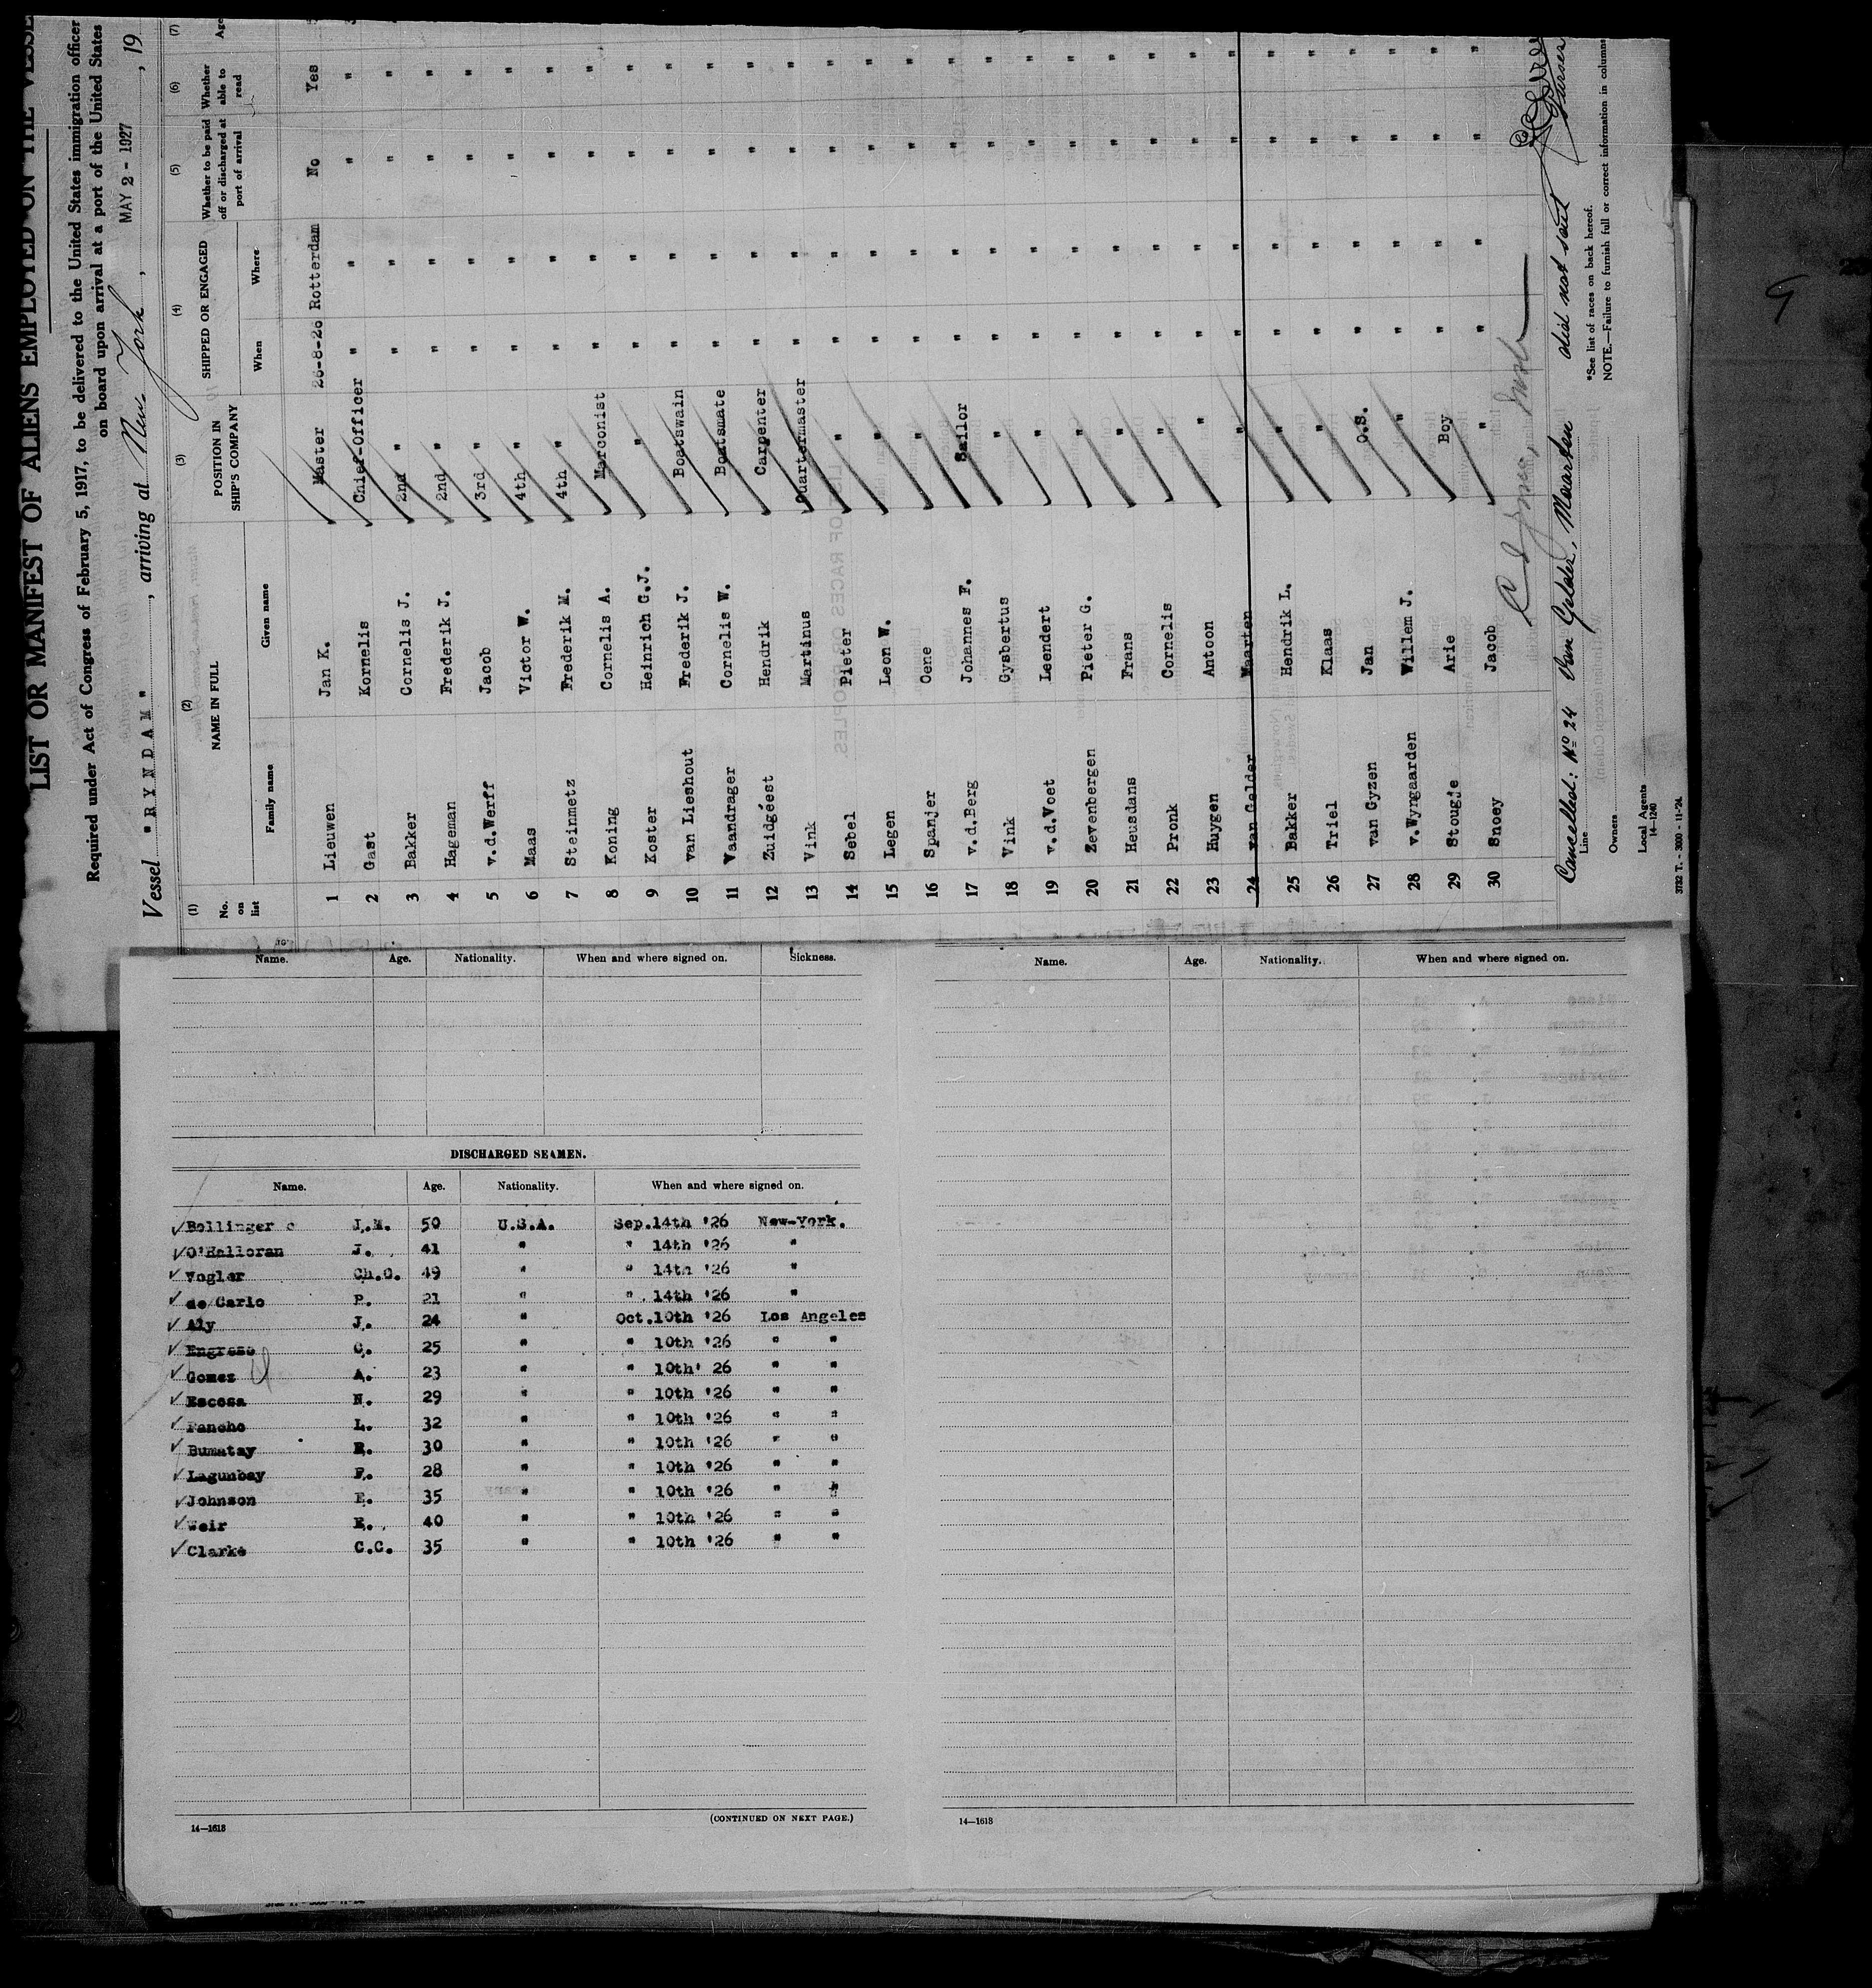 LIST OR MANIFEST OF ALIENS EMPLOYED ON THE VESSE
Required under Act of Congress of February 5, 1917, to be delivered to the United States immigration officer
on board upon arrival at a port of the United States
Vessel "RYNDAM", arriving at New York, MAY 2 - 1927, 19
(1) (2) (3) (4) (5) (6) (7)
No. on list NAME IN FULL POSITION IN SHIP'S COMPANY SHIPPED OR ENGAGED Whether to be paid off or discharged at port of arrival Whether able to read Age
Family name Given name When Where
1 Lieuwen Jan K. Master 26-8-26 Rotterdam No Yes
2 Gast Kornelis Chief-Officer " " " "
3 Bakker Cornelis J. 2nd " " " " "
4 Hageman Frederik J. 2nd " " " " "
5 v.d.Werff Jacob 3rd " " " " "
6 Maas Victor W. 4th " " " " "
7 Steinmetz Frederik M. 4th " " " " "
8 Koning Cornelis A. Marconist " " " "
9 Koster Heinrich G.J. " " " " "
10 van Lieshout Frederik J. Boatswain " " " "
11 Vaandrager Cornelis W. Boatsmate " " " "
12 Zuidgéest Hendrik Carpenter " " " "
13 Vink Martinus Quartermaster " " " "
14 Sebel Pieter " " " " "
15 Legen Leon W. " " " " "
16 Spanjer Oene " " " " "
17 v.d.Berg Johannes F. Sailor " " " "
18 Vink Gysbertus " " " " "
19 v.d.Voet Leendert " " " " "
20 Zevenbergen Pieter G. " " " " "
21 Heusdans Frans " " " " "
22 Pronk Cornelis " " " " "
23 Huygen Antoon " " " " "
24 van Gelder Maarten " " " " "
25 Bakker Hendrik L. " " " " "
26 Triel Klaas " " " " "
27 van Gyzen Jan O.S. " " " "
28 v.Wyngaarden Willem J. " " " " "
29 Stougje Arie Boy " " " "
30 Snoey Jacob " " " " "
Cancelled: No 24 Van Gelder, Maarten did not sail
Purser
Line
Owners
Local Agents
14-1240
*See list of races on back hereof.
NOTE.—Failure to furnish full or correct information in columns
3732 T. - 3000 - 11-'24.
Name. Age. Nationality. When and where signed on. Sickness.
DISCHARGED SEAMEN.
Name. Age. Nationality. When and where signed on.
Bollinger J.M. 50 U.S.A. Sep.14th '26 New-York.
O'Halloran J. 41 " " 14th '26 "
Vogler Ch.O. 49 " " 14th '26 "
de Carlo P. 21 " " 14th '26 "
Aly J. 24 " Oct.10th '26 Los Angeles
Engreso C. 25 " " 10th '26 " "
Gomez A. 23 " " 10th' 26 " "
Escosa N. 29 " " 10th '26 " "
Pancho L. 32 " " 10th '26 " "
Bumatay R. 30 " " 10th '26 " "
Lagunbay F. 28 " " 10th '26 " "
Johnson E. 35 " " 10th '26 " "
Weir E. 40 " " 10th '26 " "
Clarke C.C. 35 " " 10th '26 " "
14—1613
(CONTINUED ON NEXT PAGE.)
Name. Age. Nationality. When and where signed on.
14—1613